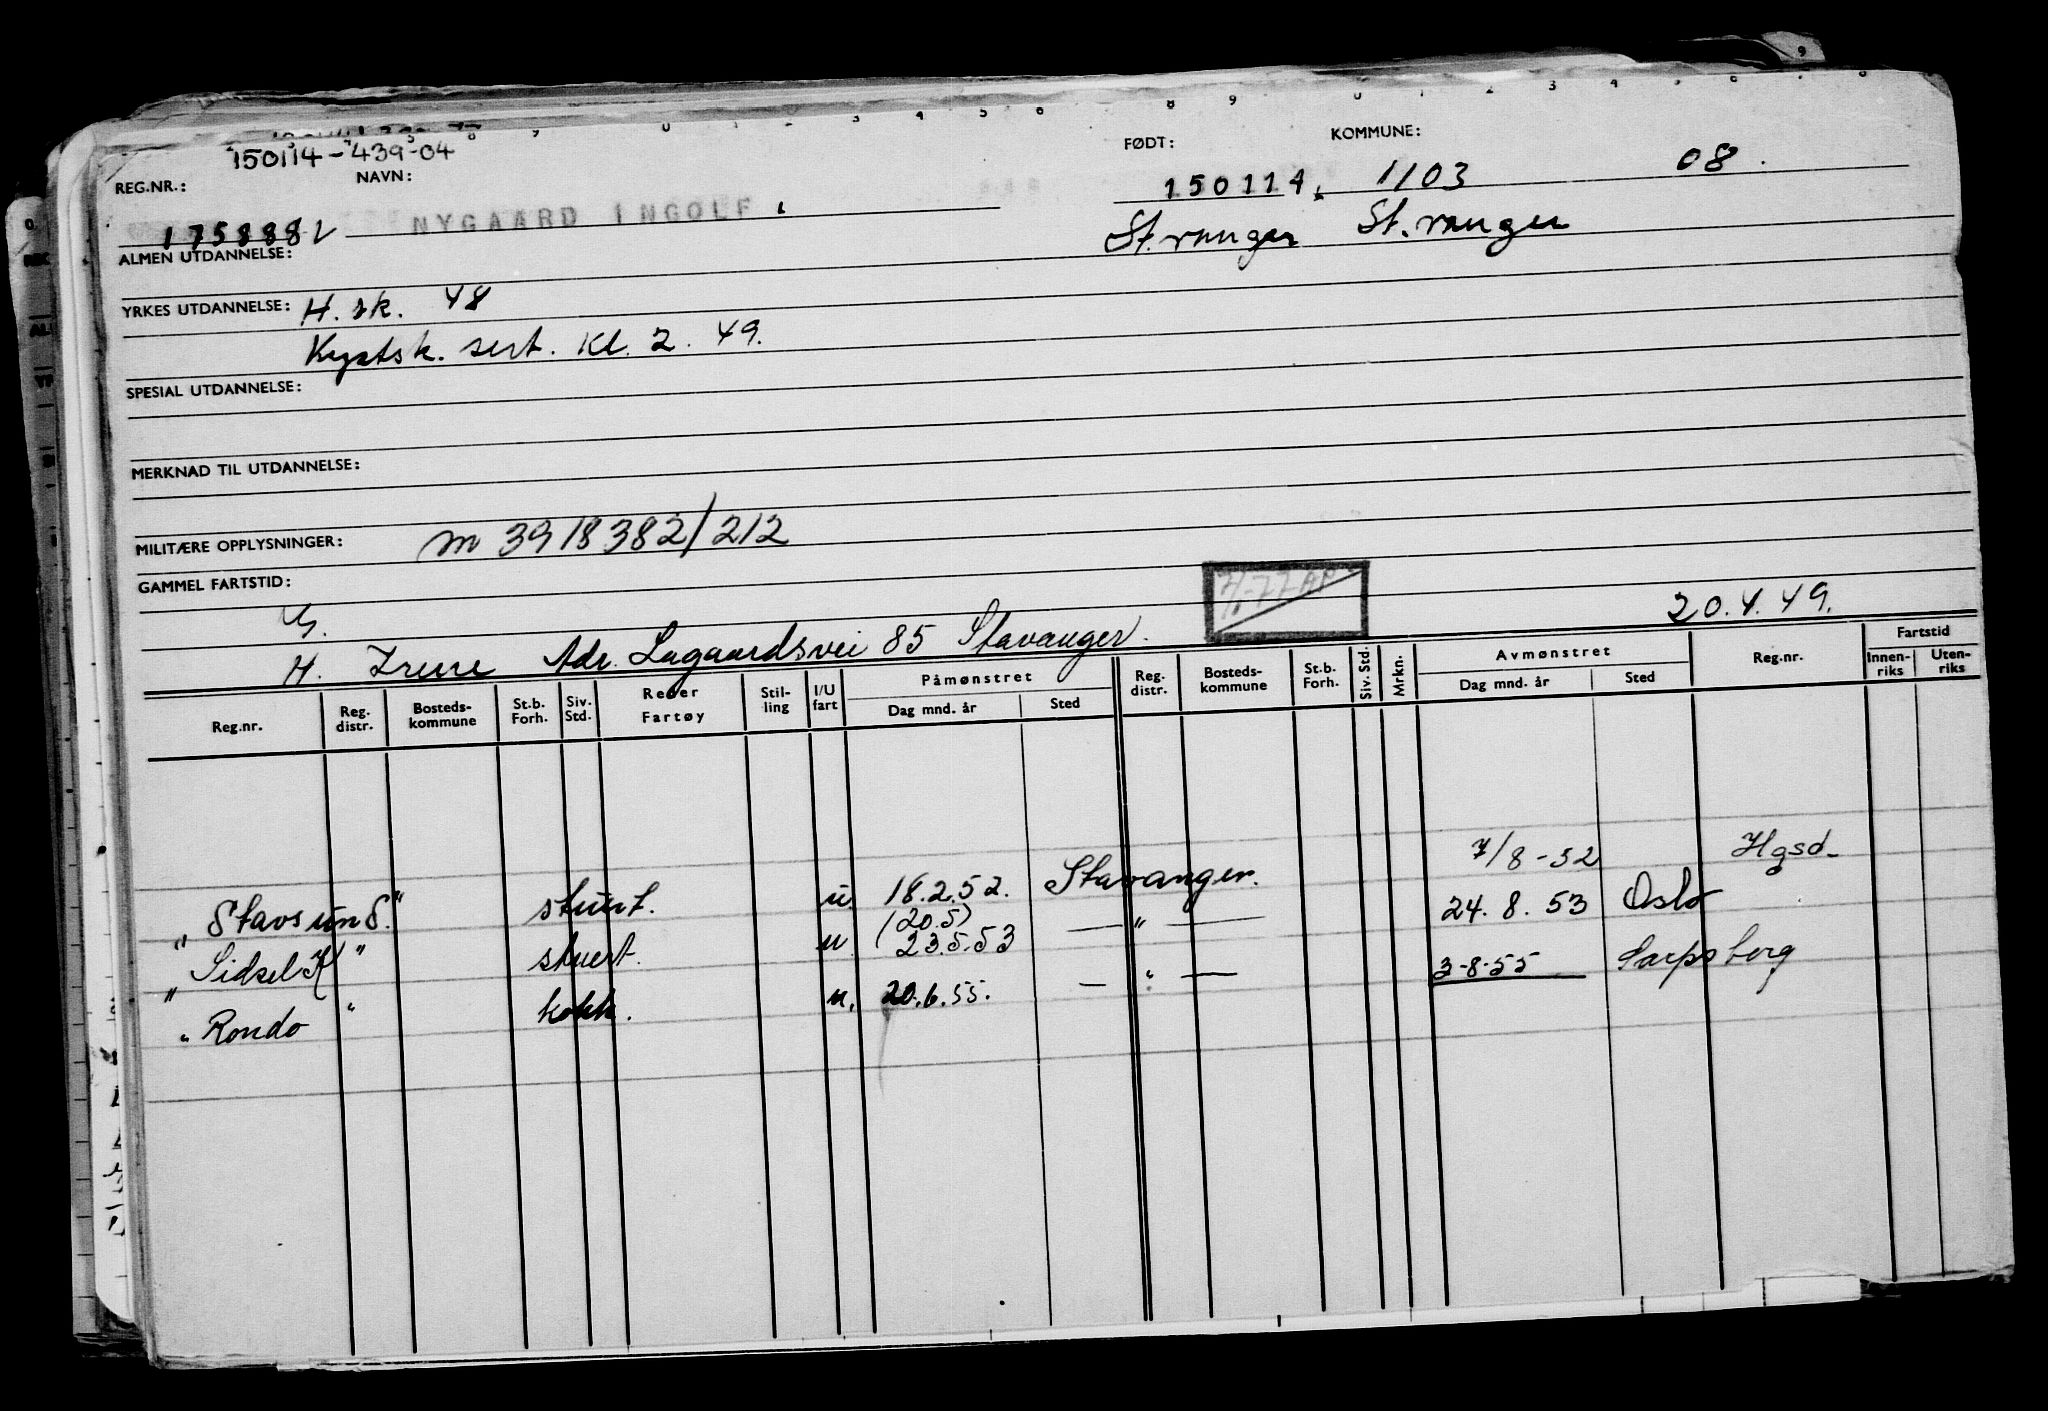 150114-439-04
REG.NR.: NAVN: FØDT: KOMMUNE:
1758882 NYGAARD INGOLF, 150114, 1103 08.
St.vanger St.vanger
ALMEN UTDANNELSE:
YRKES UTDANNELSE: H. sk. 48
Kystsk. sert. Kl. 2. 49.
SPESIAL UTDANNELSE:
MERKNAD TIL UTDANNELSE:
MILITÆRE OPPLYSNINGER: m 3918382/212
GAMMEL FARTSTID:
G. 20.4.49.
H. Irene Adr. Lagaardsvei 85 Stavanger.
Reg.nr. Reg. distr. Bosteds-kommune St.b. Forh. Siv. Std. Reder Fartøy Stil-ling I/U fart Påmønstret Dag mnd. år Sted Reg. distr. Bosteds-kommune St.b. Forh. Siv. Std. Mrkn. Avmønstret Dag mnd. år Sted Reg.nr. Fartstid Innen-riks Uten-riks
„Stavsund" stuert. u 18.2.52. Stavanger. 7/8-52 Hgsd.
(20.5)
„Sidsel K" stuert. u 23.5.53 — " — 24.8.53 Oslo
„Rondo" kokk. u. 20.6.55. — " — 3-8-55 Sarpsborg